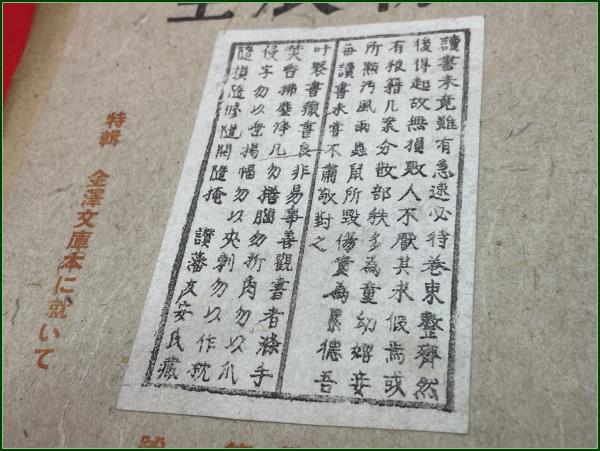 讀書未竟雖有急速必待卷束整齊然
後得起故無損敗人不厭其求假焉或
有狼籍几案分散部秩多為童幼婢妾
所點汚風雨蟲鼠所毀傷實為累德吾
每讀書未甞不肅敬對之
吁聚書藏書良非易事善觀書者滌手
焚香拂塵淨几勿捲腦勿折角勿以爪
侵字勿以唾揭幅勿以夾刺勿以作枕
隨損隨修隨開隨掩 安氏藏
特輯 金澤文庫本に就いて